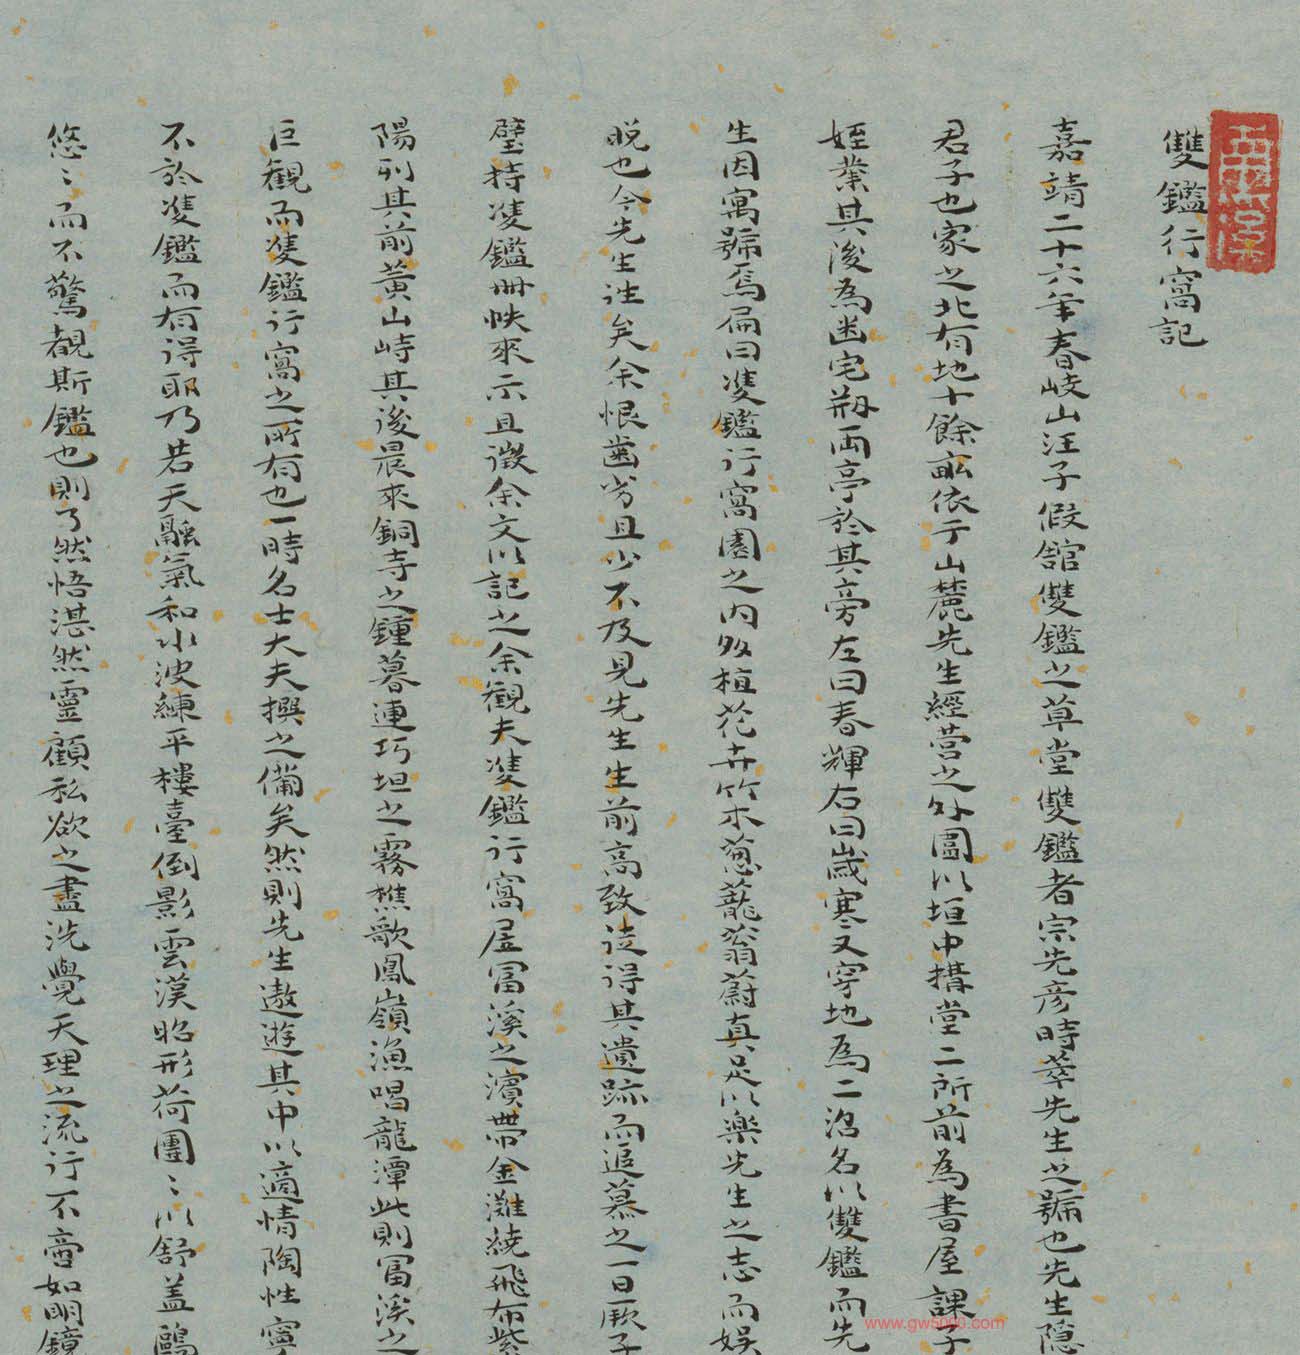 雙鑑行窩記
嘉靖二十六年春岐山汪子假舘雙鑑之草堂雙鑑者宗先彦時萃先生之號也先生隠
君子也家之北有地十餘畝依于山麓先生經营之外圍以垣中搆堂二所前為書屋課子
姪業其後為幽宅剏両亭於其旁左曰春輝右曰歲寒又穿地為二沼名以雙鑑而先
生因寓號焉扁曰雙鑑行窩園之内収植花卉竹木葱蘢蓊蔚真足以樂先生之志而娱
晚也今先生逝矣余恨齒劣且少不及見先生生前高致徒得其遺跡而追慕之一日厥子
璧持雙鑑册帙來示且徵余文以記之余觀夫雙鑑行窩居冨溪之濱帶金灘繞飛布紫
陽列其前黄山峙其後晨來銅寺之鍾暮連巧坦之霧樵歌鳳嶺漁唱龍潭此則冨溪之
巨觀而雙鑑行窩之所有也一時名士大夫撰之備矣然則先生遨遊其中以適情陶性寧
不於雙鑑而有得耶乃若天融氣和水波練平樓臺倒影雲漢昭形荷團〻以舒盖鷗
悠〻而不驚觀斯鑑也則了然悟湛然靈顧私欲之盡洗覺天理之流行不啻如明鏡
www.gw5000.com